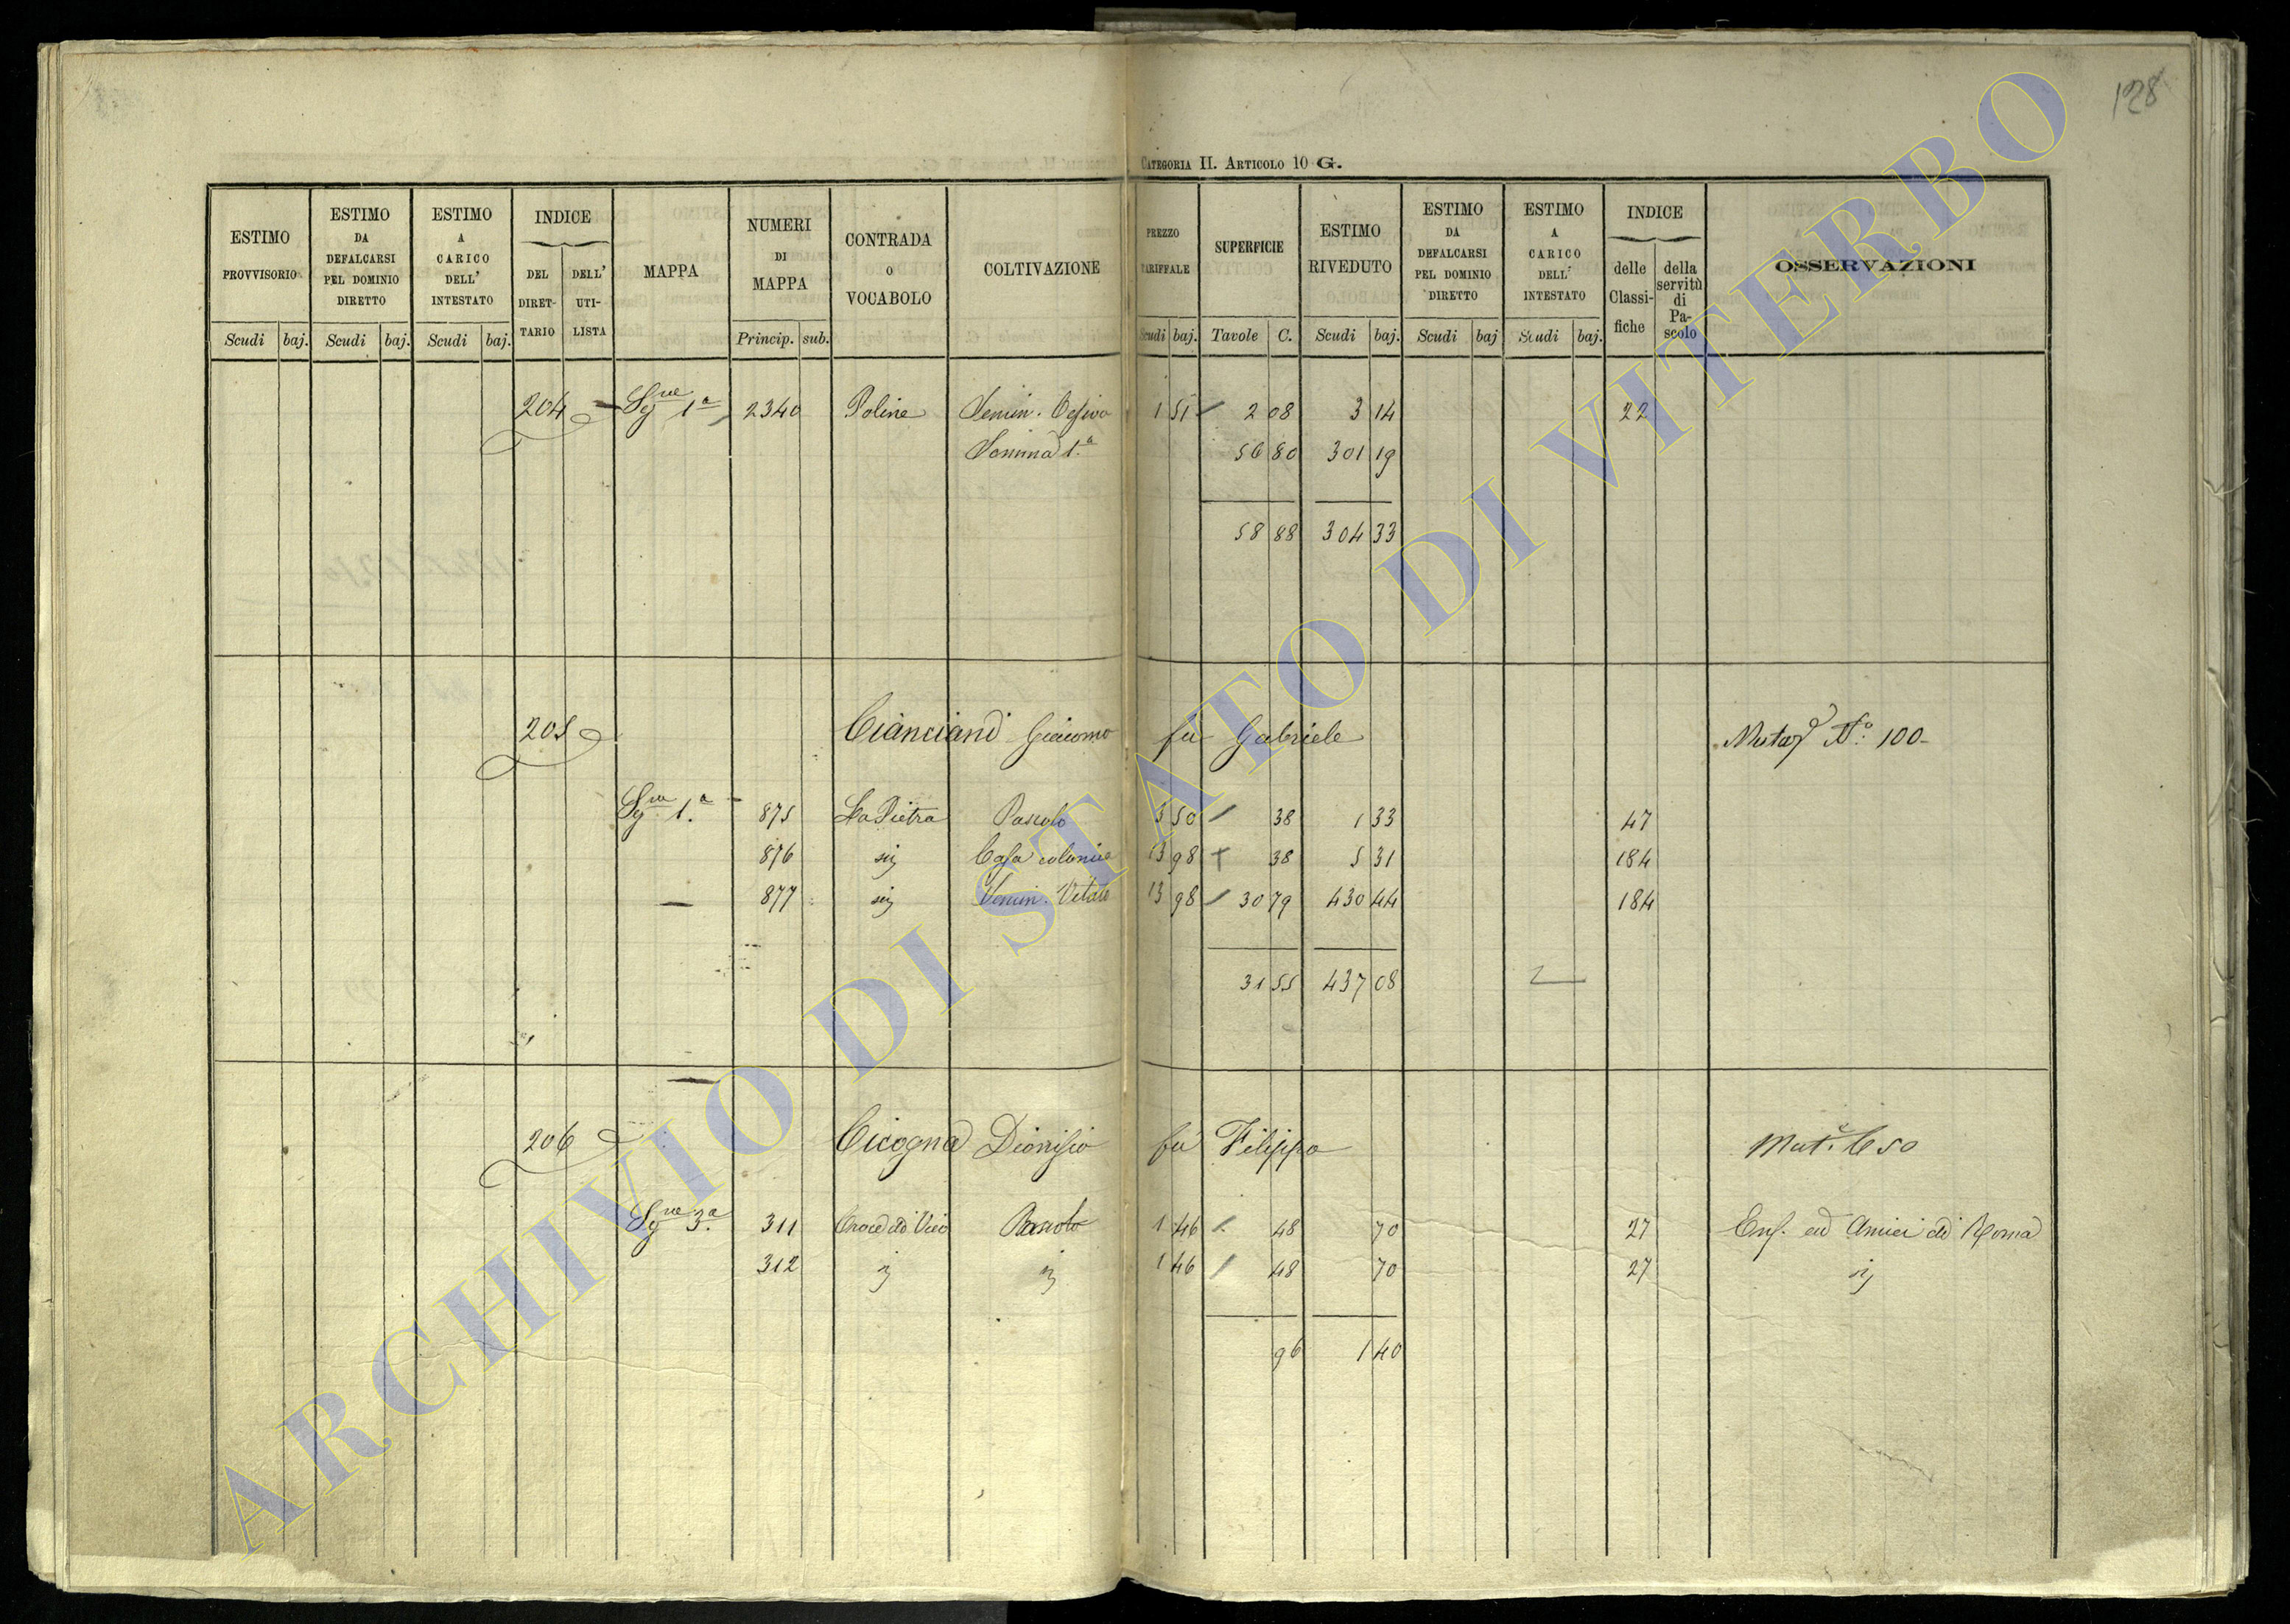 128
CATEGORIA II. ARTICOLO 10 G.
ESTIMO PROVVISORIO
ESTIMO DA DEFALCARSI PEL DOMINIO DIRETTO
ESTIMO A CARICO DELL' INTESTATO
INDICE
DEL DIRETTARIO
DELL' UTILISTA
MAPPA
NUMERI DI MAPPA
CONTRADA O VOCABOLO
COLTIVAZIONE
PREZZO TARIFFALE
SUPERFICIE
ESTIMO RIVEDUTO
ESTIMO DA DEFALCARSI PEL DOMINIO DIRETTO
ESTIMO A CARICO DELL' INTESTATO
INDICE
delle Classifiche
della servitù di Pascolo
OSSERVAZIONI
Scudi baj. Scudi baj. Scudi baj. Princip. sub. Scudi baj. Tavole C. Scudi baj. Scudi baj Scudi baj.
204 Sgne 1a 2340 Poline Semin. 1 51 2 08 3 14 22
Somma 1.a 56 80 301 19
58 88 304 33
205 Cianciani Giacomo fu Gabriele N.o 100
Sgne 1.a 875 La Pietra Pascolo 3 50 38 1 33 47
876 sij Casa colonica 13 98 38 5 31 184
877 sij Semin. Vitato 13 98 30 79 430 44 184
31 55 437 08
206 Cicogna Dionisio fu Filippo Mut.
Sgne 3.a 311 Croce di Vico Pascolo 1 46 48 70 27 Enf. ad Amici di Roma
312 ij ij 1 46 48 70 27 sij
96 1 40
ARCHIVIO DI STATO DI VITERBO